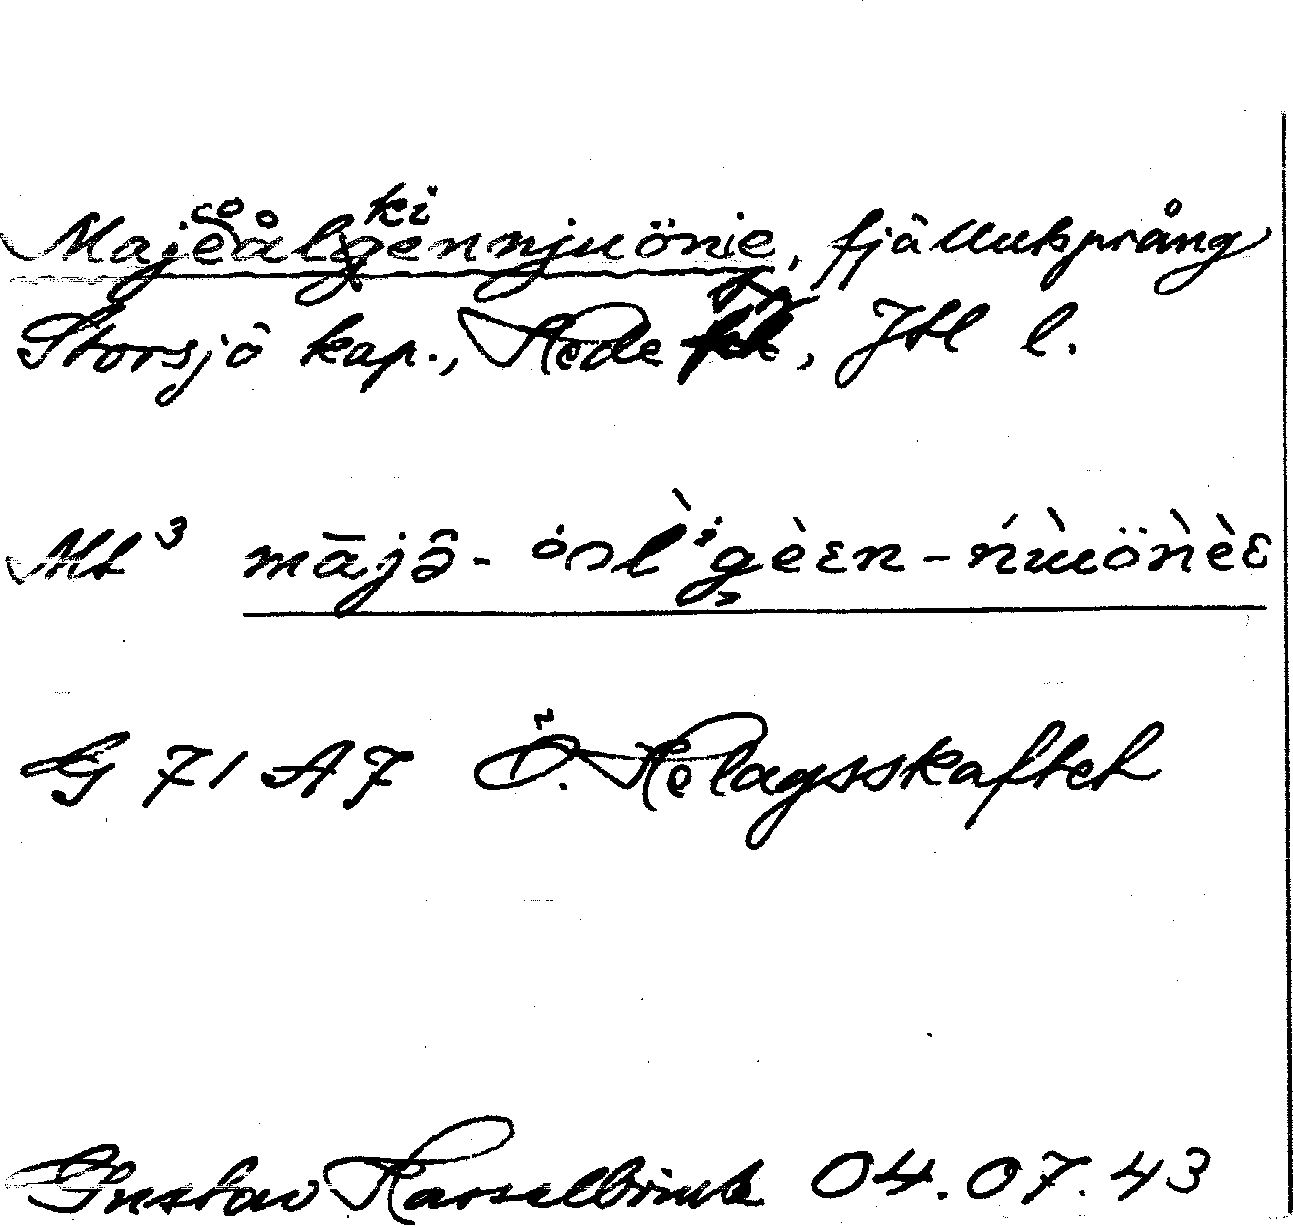 Majeålgennjuönie, fjällutsprång
Storsjö kap., Rede, Jtl l.
Mt 3 mājə̂- -ǹùöǹèɛ
G 71 A7 Ö. Rölagsskaftet
Gustav Hasselbrink 04.07.43